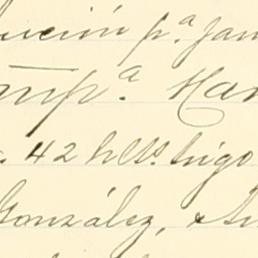 ución p.ª Jan
mp.ª Har
42 hlts. trigo
González, & Au